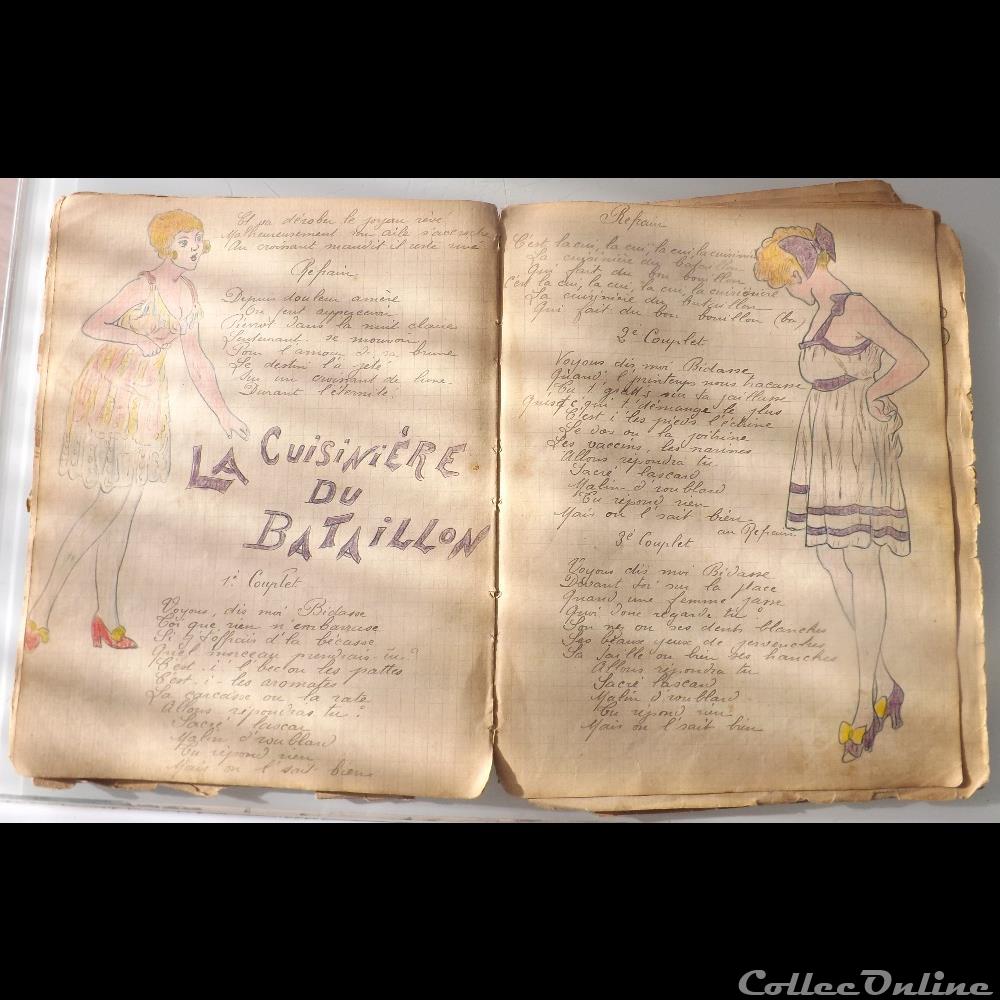 Et va dérober le joyau rêvé
Malheureusement son aile s'accroche
Au croissant maudit il reste
Refrain
Depuis douleur amère
On peut appercevoir
Pierrot dans la nuit claire
Lentement se mouvoir
Pour l'amour d' sa brune
Le destin l'a jeté
Sur un croissant de lune
Durant l'éternité.
LA CUISINIÈRE
DU
BATAILLON
1e Couplet
Voyons, dis moi Bidasse
Toi que rien n'embarrasse
Si j' t'offrais d'la bécasse
Quel morceau prendrais-tu?
C'est-i l'bec ou les pattes
C'est-i-les aromates
La carcasse ou la rate
Allons répondras tu?
Sacré lascar
Malin d'roublard
Tu répond rien
Mais on l'sait bien
Refrain
C'est la cui, la cui, la cui, la cuisinière
La cuisinière du bataillon
Qui fait du bon bouillon
C'est la cui, la cui, la cui, la cuisinière
La cuisinière du bataillon
Qui fait du bon bouillon (bon)
2e Couplet
Voyons dis moi Bidasse
Quand l' printemps nous tracasse
Tu t' grattes sur ta paillasse
Qu'est c' qui t' démange le plus
C'est i les pieds l'échine
Le dos ou la poitrine
Les vaccins, les narines
Allons répondra tu
Sacré lascard
Malin d'roublard
Tu répond rien
Mais on l'sait bien
au Refrain
3e Couplet
Voyons dis moi Bidasse
Devant toi sur la place
Quand une femme passe
Quoi donc regarde tu?
Son nez ou ses dents blanches
Ses beaux yeux de pervenches
Sa taille ou bien ses hanches
Allons répondra tu
Sacré lascard
Malin d'roublard
Tu répond rien
Mais on l'sait bien
CollecOnline